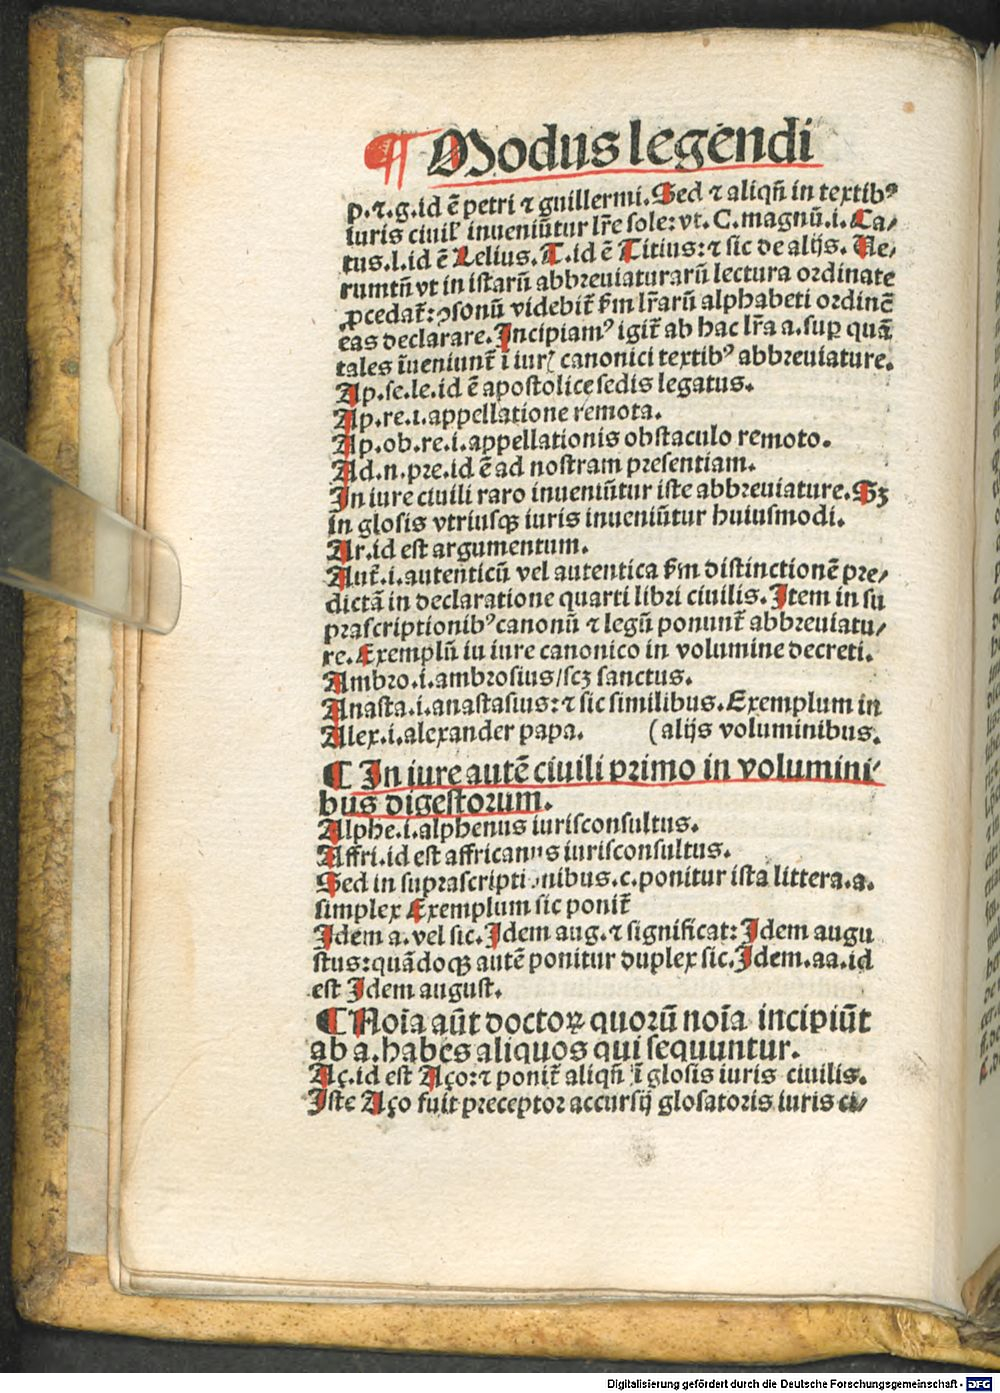 ¶ Modus legendi
p.⁊.g.id ē petri ⁊ guillermi. Sed ⁊ aliqñ in textibꝰ
iuris ciuil' inueniūtur lr̄e sole: vt. C. magnū.i. Ca⸗
tus.l.id ē Lelius. T.id ē Titius: ⁊ sic de alijs. Ve⸗
rumtñ vt in istarū abbreuiaturarū lectura ordinate
ꝓcedat̃: ꝯsonū videbit̃ ẜm lr̄arū alphabeti ordinē
eas declarare. Incipiamꝰ igit̃ ab hac lr̄a a. suꝑ quā
tales īueniunt̃ ī iurꝭ canonici textibꝰ abbreuiature.
Ap.se.le.id ē apostolice sedis legatus.
Ap.re.i.appellatione remota.
Ap.ob.re.i.appellationis obstaculo remoto.
Ad.n.pre.id ē ad nostram presentiam.
In iure ciuili raro inueniūtur iste abbreuiature. Sꝫ
in glosis vtriusqꝫ iuris inueniūtur huiusmodi.
Ar.id est argumentum.
Aut̃.i.autenticū vel autentica ẜm distinctionē pre⸗
dictā in declaratione quarti libri ciuilis. Item in su
prascriptionibꝰ canonū ⁊ legū ponunt̃ abbreuiatu⸗
re. Exemplū iu iure canonico in volumine decreti.
Ambro.i.ambrosius/scꝫ sanctus.
Anasta.i.anastasius: ⁊ sic similibus. Exemplum in
Alex.i.alexander papa. (alijs voluminibus.
¶ In iure autē ciuili primo in volumini⸗
bus digestorum.
Alphe.i.alphenus iurisconsultus.
Affri.id est affricanus iurisconsultus.
Sed in suprascriptionibus.c.ponitur ista littera.a.
simplex Exemplum sic ponit̃
Idem a. vel sic. Idem aug. ⁊ significat: Idem augu
stus: quādoqꝫ autē ponitur duplex sic. Idem.aa.id
est Idem august.
¶ Noīa aūt doctoꝝ quorū noīa incipiūt
ab a. habes aliquos qui sequuntur.
Aç.id est Aço: ⁊ ponit̃ aliqñ ī glosis iuris ciuilis.
Iste Aço fuit preceptor accursij glosatoris iuris ci⸗
Digitalisierung gefördert durch die Deutsche Forschungsgemeinschaft - DFG